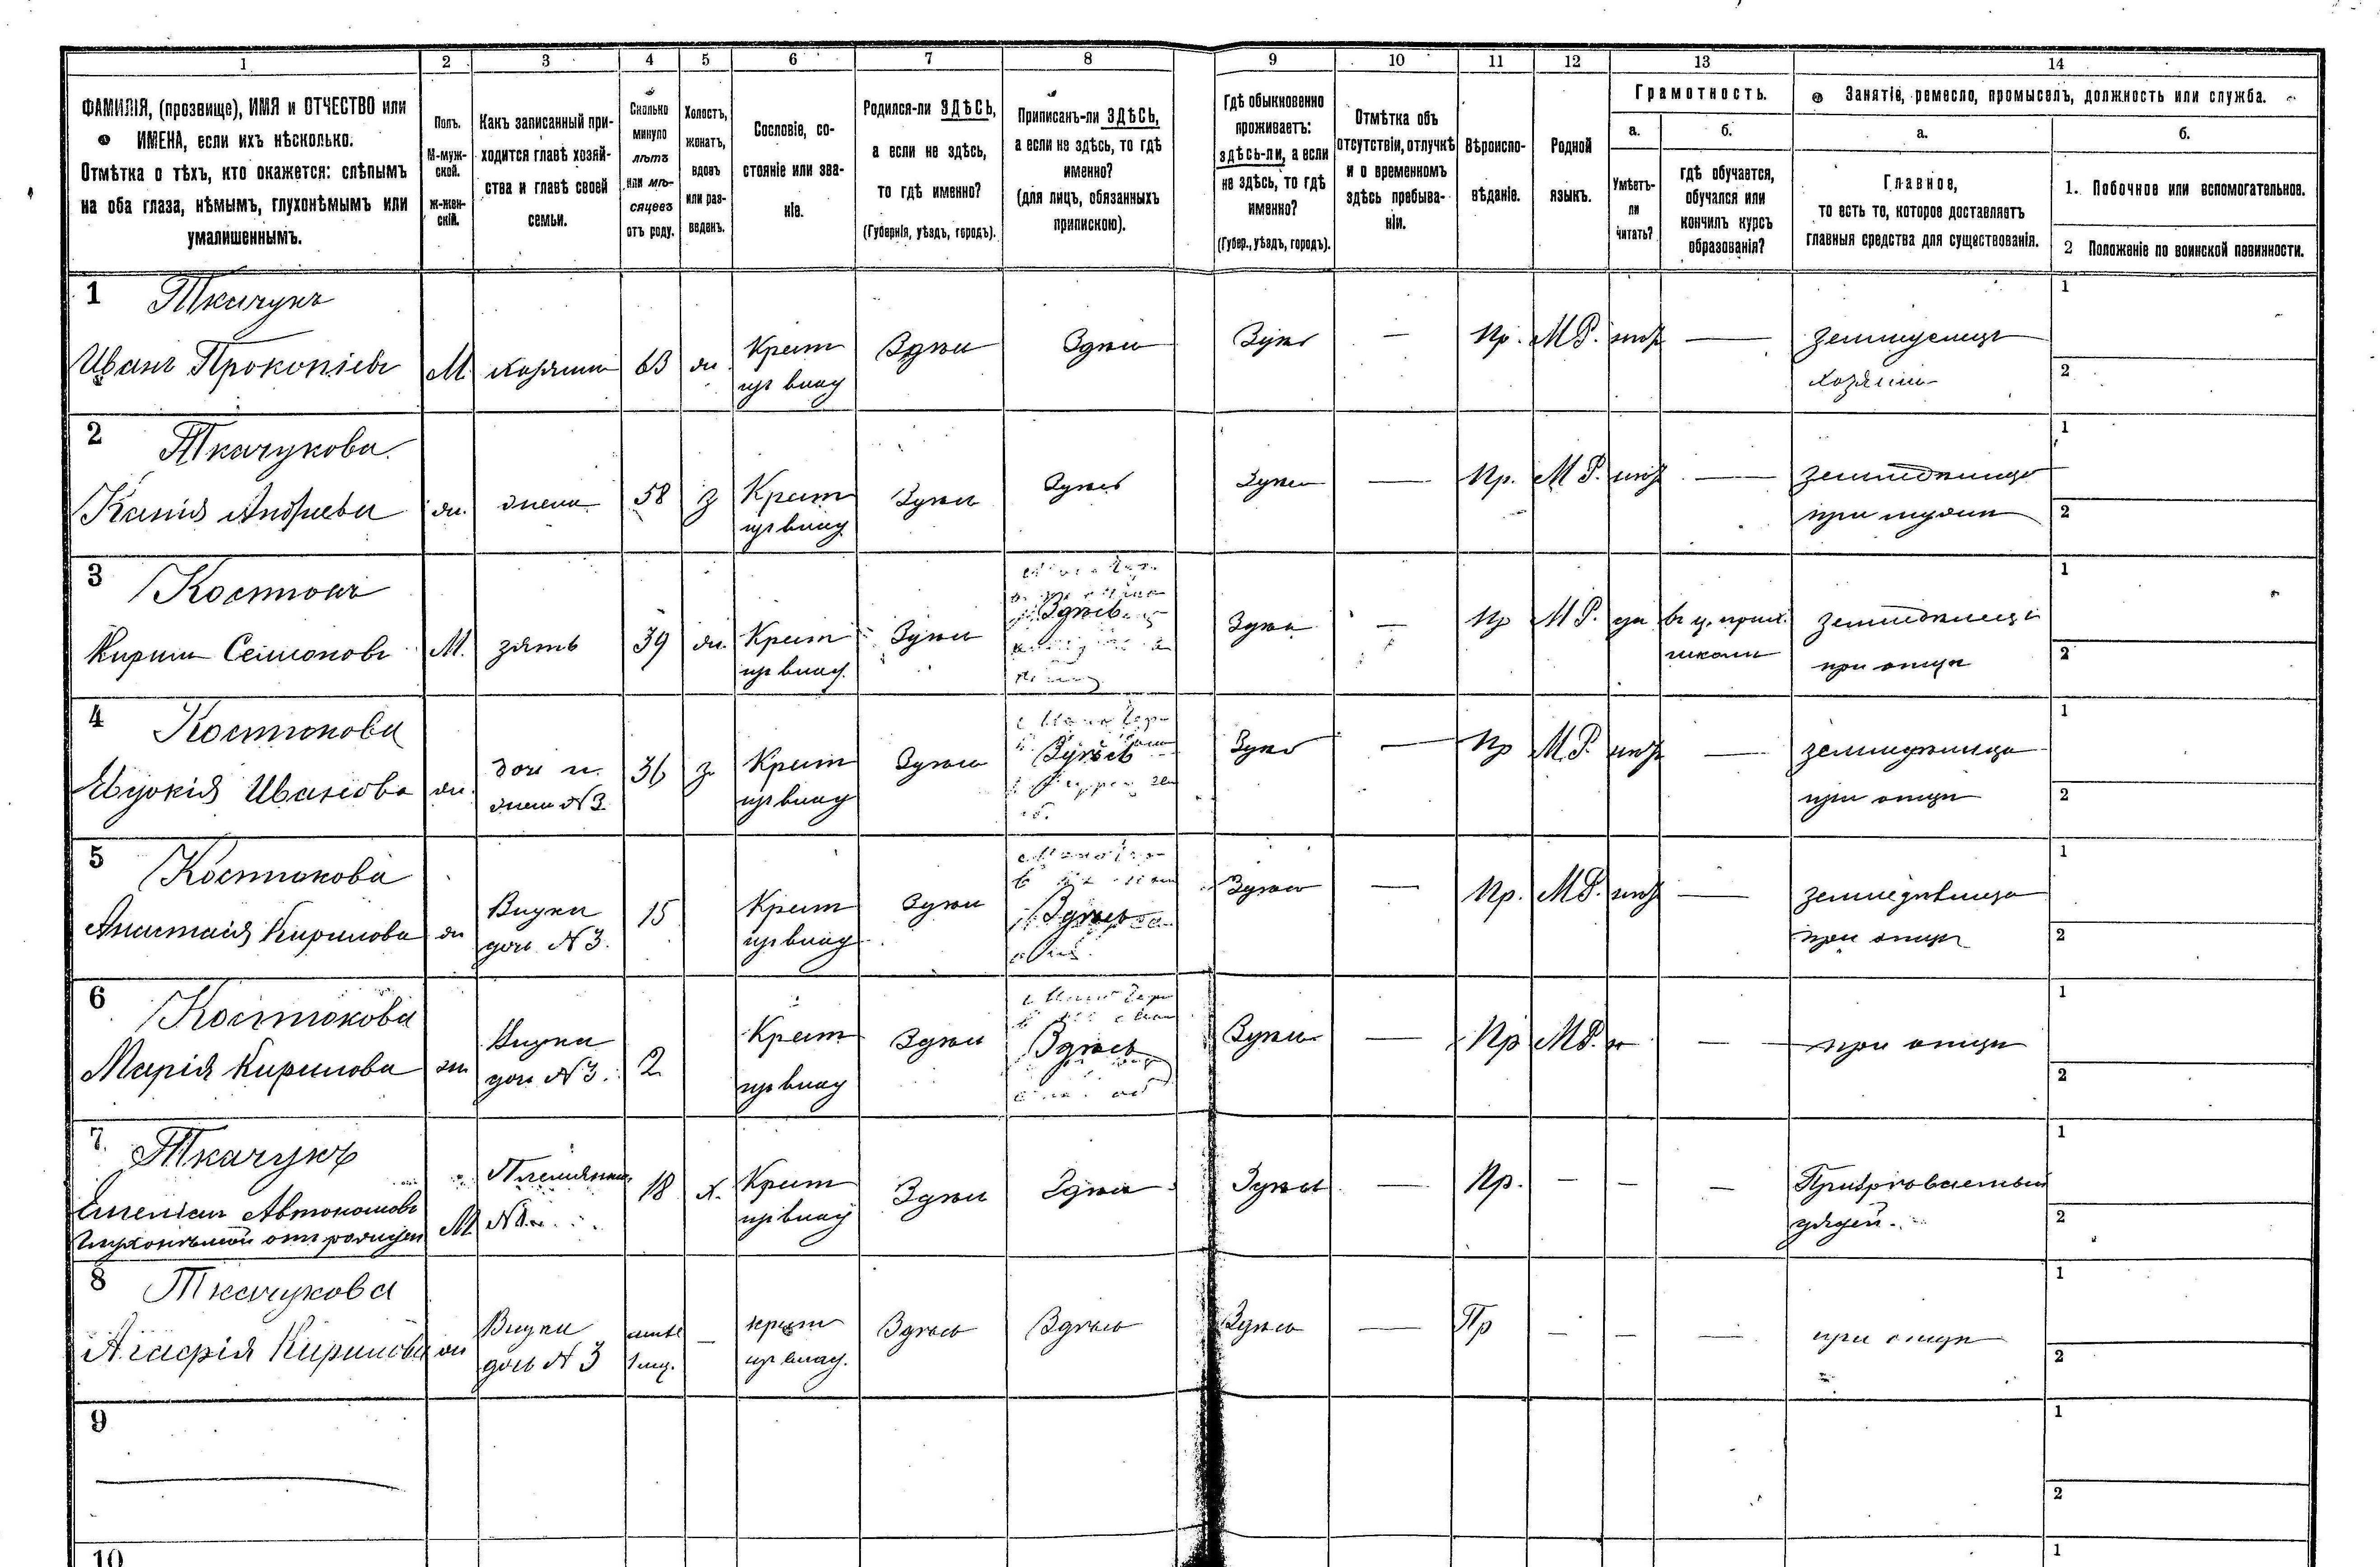 1 2 3 4 5 6 7 8 9 10 11 12 13 14
ФАМИЛІЯ, (прозвище), ИМЯ и ОТЧЕСТВО или
ИМЕНА, если ихъ нѣсколько.
Отмѣтка о тѣхъ, кто окажется: слѣпымъ
на оба глаза, нѣмымъ, глухонѣмымъ или
умалишеннымъ.
Полъ.
М-муж-
ской.
ж-жен-
скій.
Какъ записанный при-
ходится главѣ хозяй-
ства и главѣ своей
семьи.
Сколько
минуло
лѣтъ
или мѣ-
сяцевъ
отъ роду.
Холостъ,
жонатъ,
вдовъ
или раз-
веденъ.
Сословіе, со-
стояніе или зва-
ніе.
Родился-ли ЗДѢСЬ,
а если не здѣсь,
то гдѣ именно?
(Губернія, уѣздъ, городъ).
Приписанъ-ли ЗДѢСЬ,
а если не здѣсь, то гдѣ
именно?
(для лицъ, обязанныхъ
припискою).
Гдѣ обыкновенно
проживаетъ:
здѣсь-ли, а если
не здѣсь, то гдѣ
именно?
(Губер., уѣздъ, городъ).
Отмѣтка объ
отсутствіи, отлучкѣ
и о временномъ
здѣсь пребыва-
ніи.
Вѣроиспо-
вѣданіе.
Родной
языкъ.
Грамотность.
а.
Умѣетъ-
ли
читать?
б.
гдѣ обучается,
обучался или
кончилъ курсъ
образованія?
Занятіе, ремесло, промыселъ, должность или служба.
а.
Главное,
то есть то, которое доставляетъ
главныя средства для существованія.
б.
1. Побочное или вспомогательное.
2 Положеніе по воинской повинности.
1 Ткачукъ
Иванъ Прокопіевъ М. хозяинъ 63 ж. Крест Здѣсь Здѣсь Здѣсь — Пр. М.Р. нѣтъ — земледѣлецъ
изъ влад хозяинъ
1
2
2 Ткачукова
Ксенія Андреева ж. жена 58 з Крест Здѣсь Здѣсь Здѣсь — Пр. М.Р. нѣтъ — земледѣлица
изъ влад при мужѣ
1
2
3 Костюкъ
Кирилъ Семионовъ М. зять 39 ж. Крест Здѣсь Здѣсь Здѣсь — Пр М.Р. да въ ц. прих. земледѣлецъ
изъ влад. школѣ при отцѣ
1
2
4 Костюкова
Евдокія Иванова ж. дочь и 36 з. Крест Здѣсь Здѣсь Здѣсь — Пр М.Р. нѣтъ — земледѣлица
жена №3 изъ влад при отцѣ
1
2
5 Костюкова
Анастасія Кирилова ж Внука 15 Крест Здѣсь Здѣсь Здѣсь — Пр. М.Р. нѣтъ — земледѣлица
дочь №3. изъ влад при отцѣ
1
2
6 Костюкова
Марія Кирилова ж Внука 2 Крест Здѣсь Здѣсь Здѣсь — Пр М.Р. — при отцѣ
дочь №3. изъ влад
1
2
7 Ткачукъ
Автономовъ М Племянникъ 18 х. Крест Здѣсь Здѣсь Здѣсь — Пр. — — —
глухонѣмой отъ рожденія №1 изъ влад дядей.
1
2
8 Ткачукова
Агафія Кирилова ж Внука — крест Здѣсь Здѣсь Здѣсь — Пр — — — при отцѣ
дочь №3 1 мѣс. изъ влад.
1
2
9
1
2
10
1